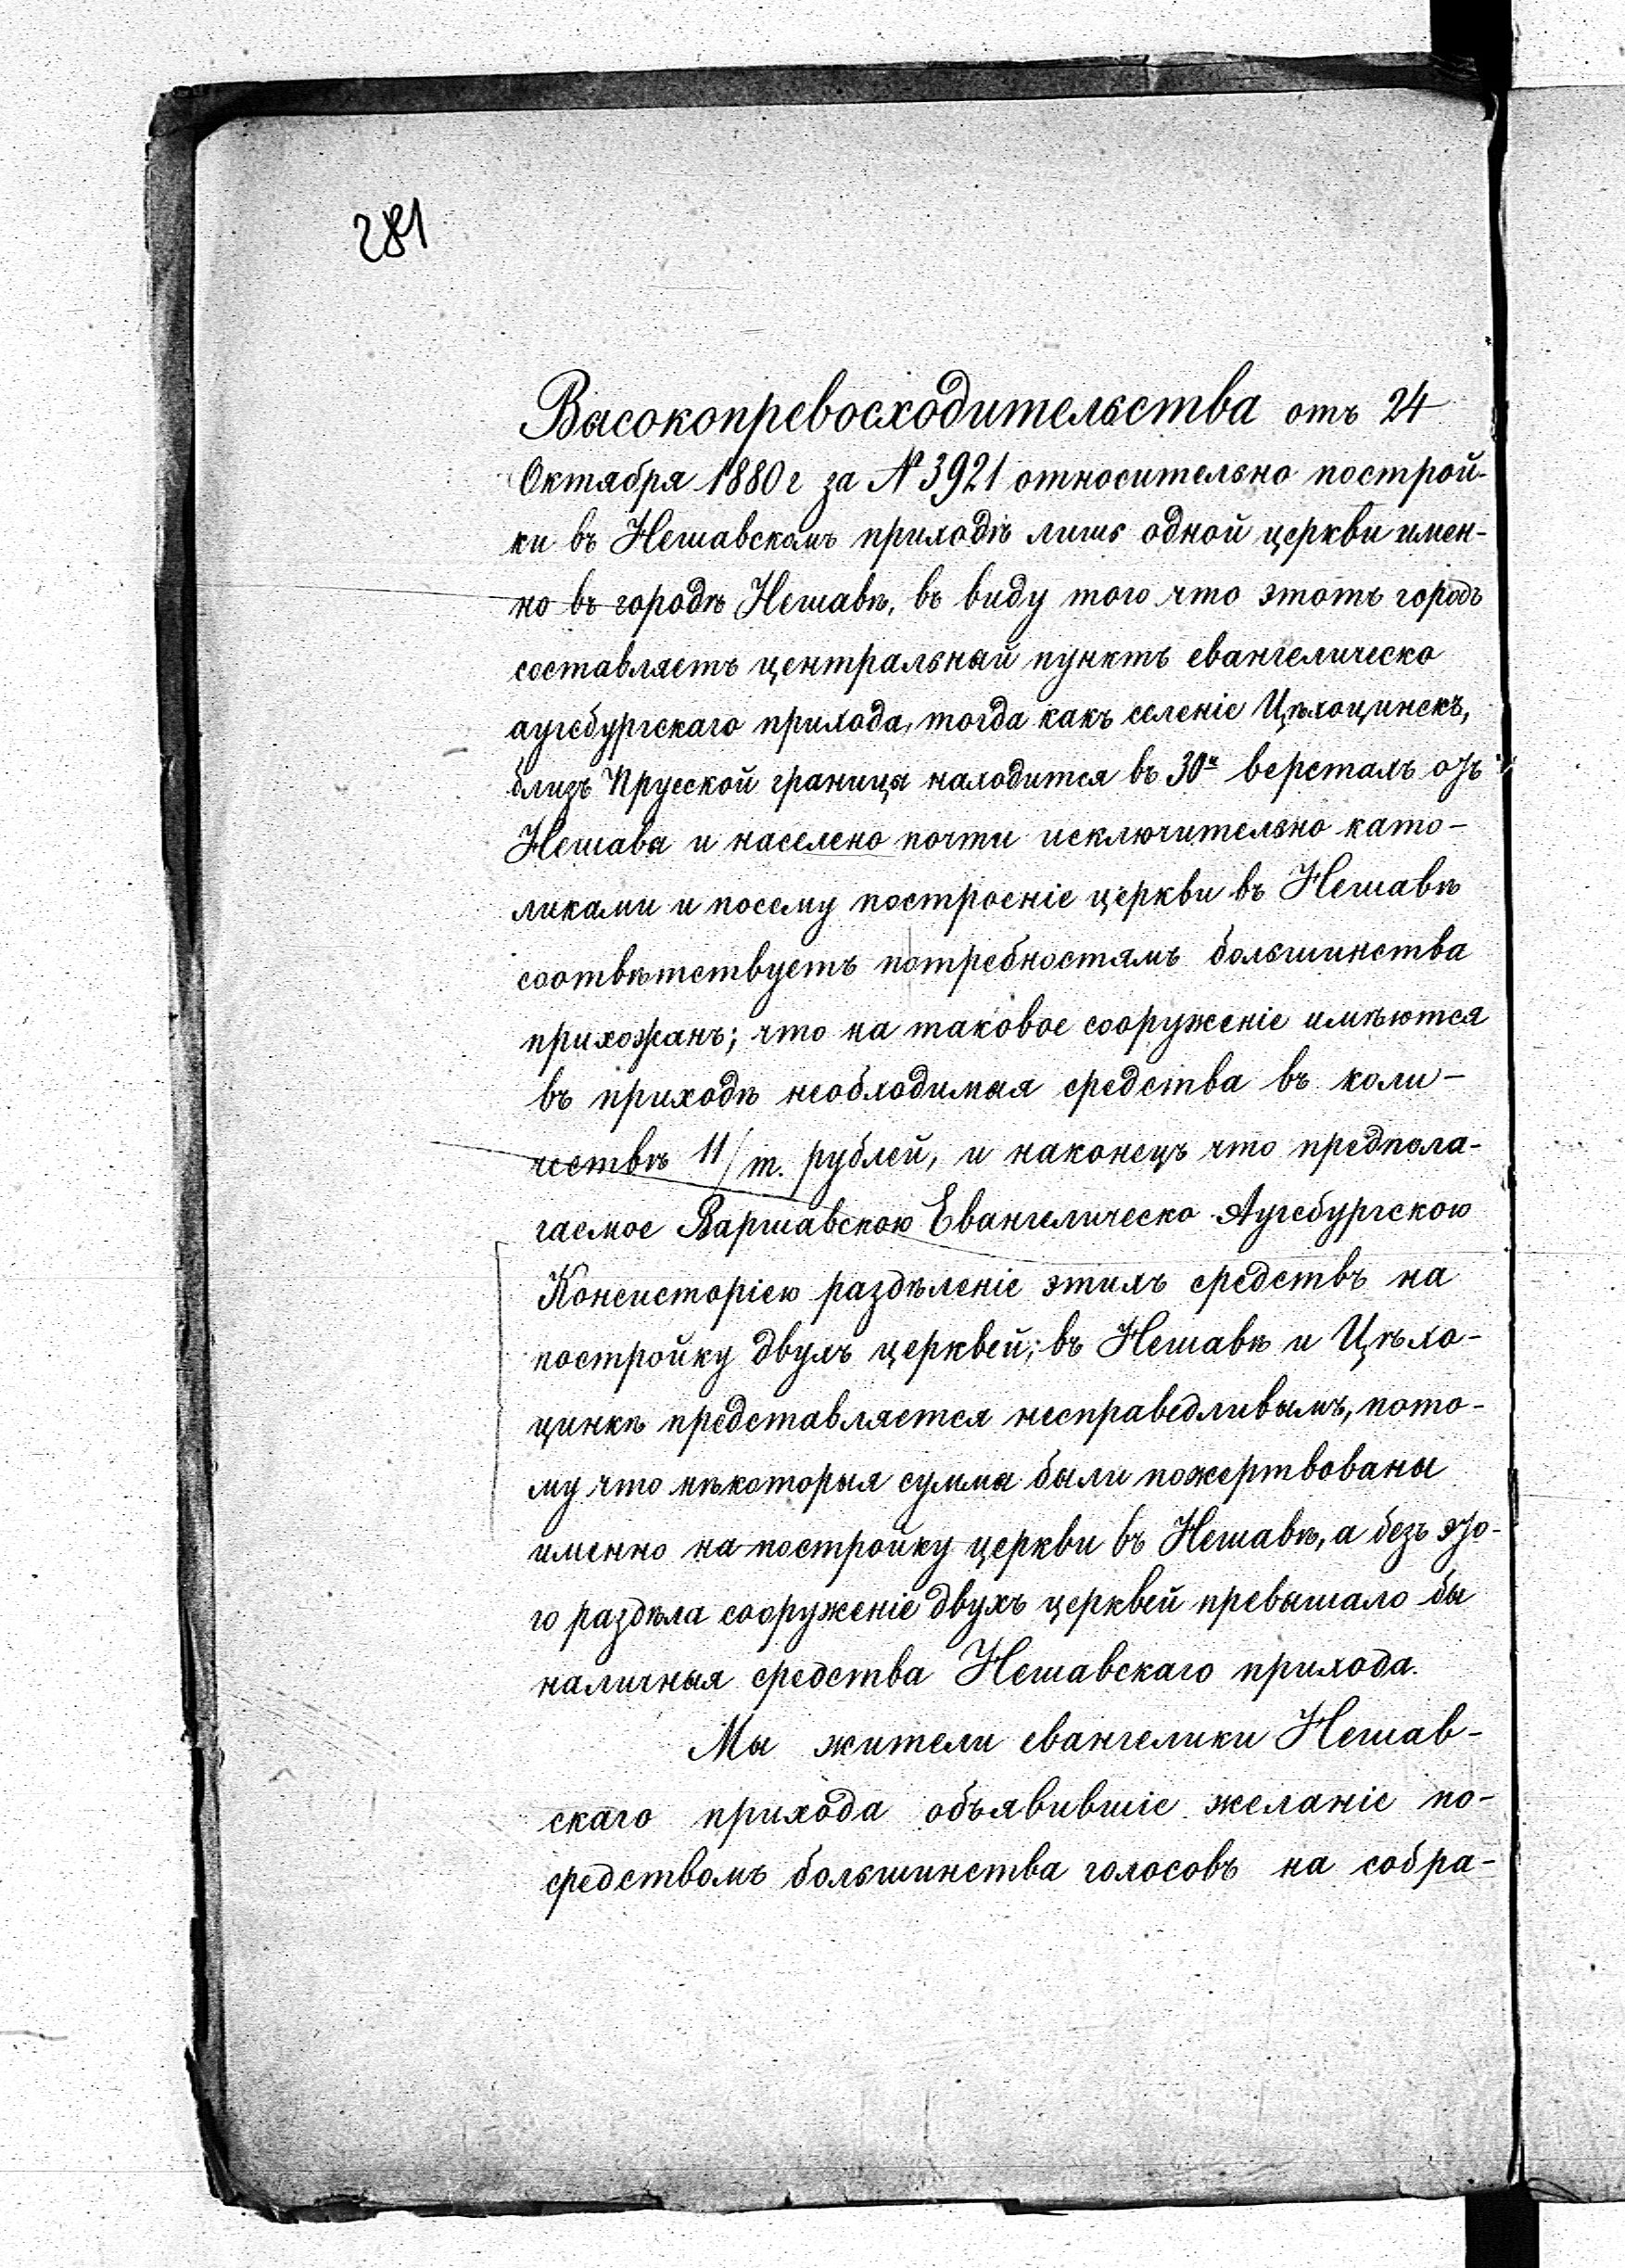 281
Высокопревосходительства отъ 24
Октября 1880 г за № 3921 относительно построй-
ки въ Нешавскомъ приходѣ лишь одной церкви имен-
но въ городѣ Нешавѣ, въ виду того что этотъ городъ
составляетъ центральный пунктъ евангелическо
аугсбургскаго прихода, тогда какъ селеніе Цѣхоцинскъ,
близъ Прусской границы находится въ 30и верстахъ отъ
Нешавы и населено почти исключительно като-
ликами и посему построеніе церкви въ Нешавѣ
соотвѣтствуетъ потребностямъ большинства
прихожанъ; что на таковое сооруженіе имѣются
въ приходѣ необходимыя средства въ коли-
чествѣ 11/т. рублей, и наконецъ что предпола-
гаемое Варшавскою Евангелическо Аугсбургскою
Консисторіею раздѣленіе этихъ средствъ на
постройку двухъ церквей; въ Нешавѣ и Цѣхо-
цинкѣ представляется несправедливымъ, пото-
му что нѣкоторыя суммы были пожертвованы
именно на постройку церкви въ Нешавѣ, а безъ это-
го раздѣла сооруженіе двухъ церквей превышало бы
наличныя средства Нешавскаго прихода.
Мы жители евангелики Нешав-
скаго прихода объявившіе желаніе по-
средствомъ большинства голосовъ на собра-